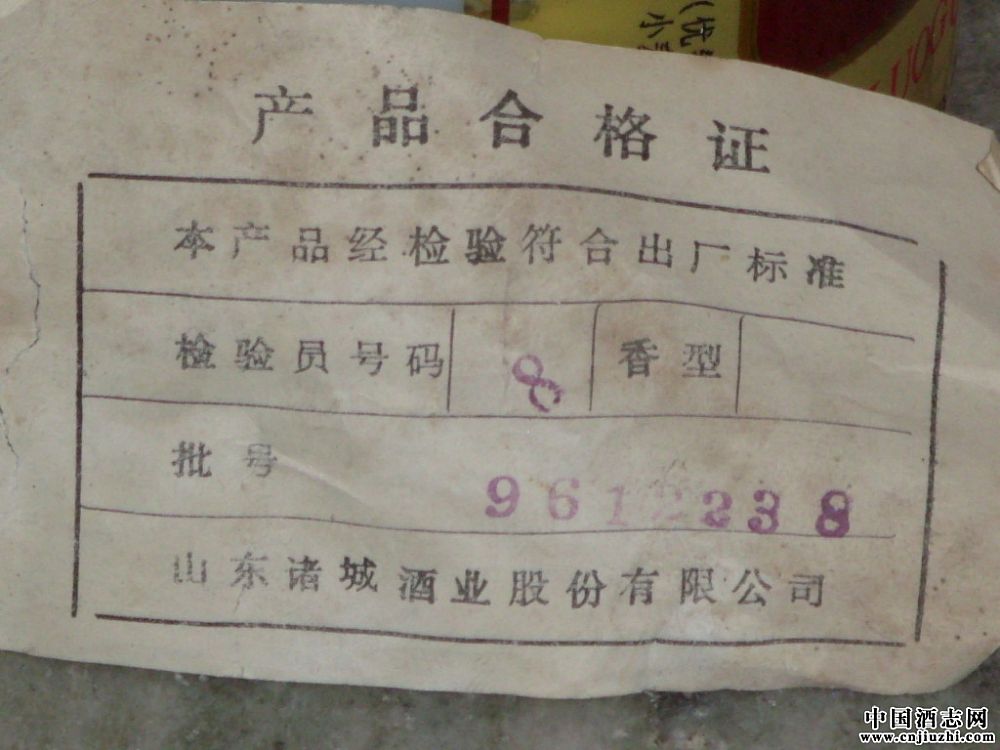 (优
小
LUOG
产品合格证
本产品经检验符合出厂标准
检验员号码 8 香型
批号 9612238
山东诸城酒业股份有限公司
中国酒志网
www.cnjiuzhi.com